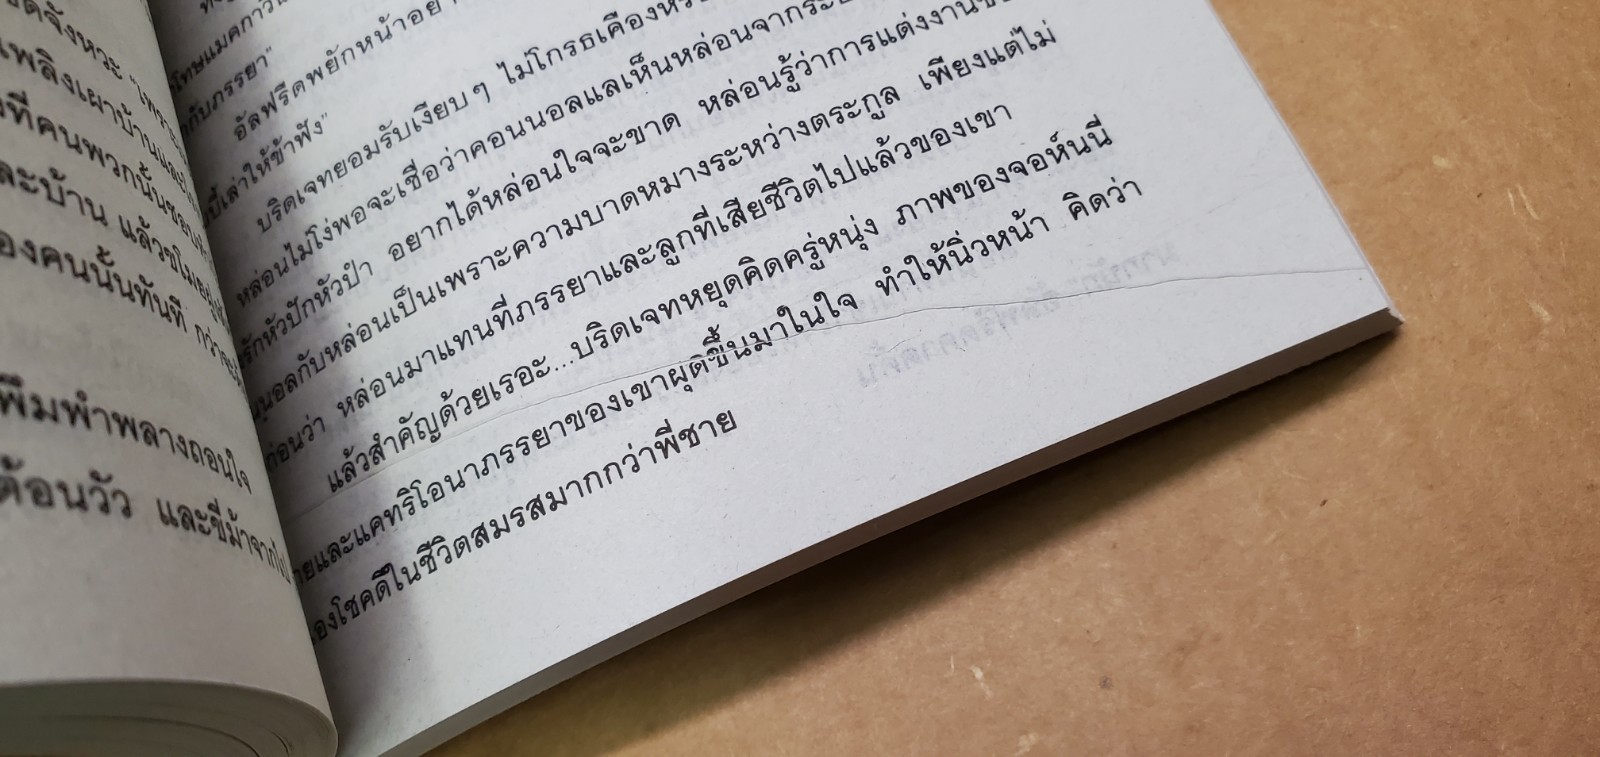 ดจังหวะ "เพราะ
เพลิงเผาบ้านและ
ที่คนพวกนั้นชอบ
ละบ้าน แล้วขโมย
องคนนั้นทันที กว่าจะ
พึมพำพลางถอนใจ
ต้อนวัว และขี่ม้าจากไป
โทษแมคกาวิน
กับภรรยา"
อัลฟรีดพยักหน้าอย่า
เล่าให้ข้าฟัง"
บริดเจทยอมรับเงียบๆ ไม่โกรธเคืองหรือ
หล่อนไม่โง่พอจะเชื่อว่าคอนนอลแลเห็นหล่อนจากระ
รักหัวปักหัวปำ อยากได้หล่อนใจจะขาด หล่อนรู้ว่าการแต่งงาน
นอลกับหล่อนเป็นเพราะความบาดหมางระหว่างตระกูล เพียงแต่ไม่
ก่อนว่า หล่อนมาแทนที่ภรรยาและลูกที่เสียชีวิตไปแล้วของเขา
แล้วสำคัญด้วยเรอะ...บริดเจทหยุดคิดครู่หนุ่ง ภาพของจอห์นนี่
ายและแคทริโอนาภรรยาของเขาผุดขึ้นมาในใจ ทำให้นิ่วหน้า คิดว่า
องโชคดีในชีวิตสมรสมากกว่าพี่ชาย